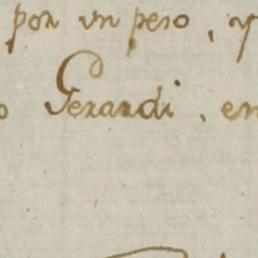 por un peso, y
o Gerardi. en